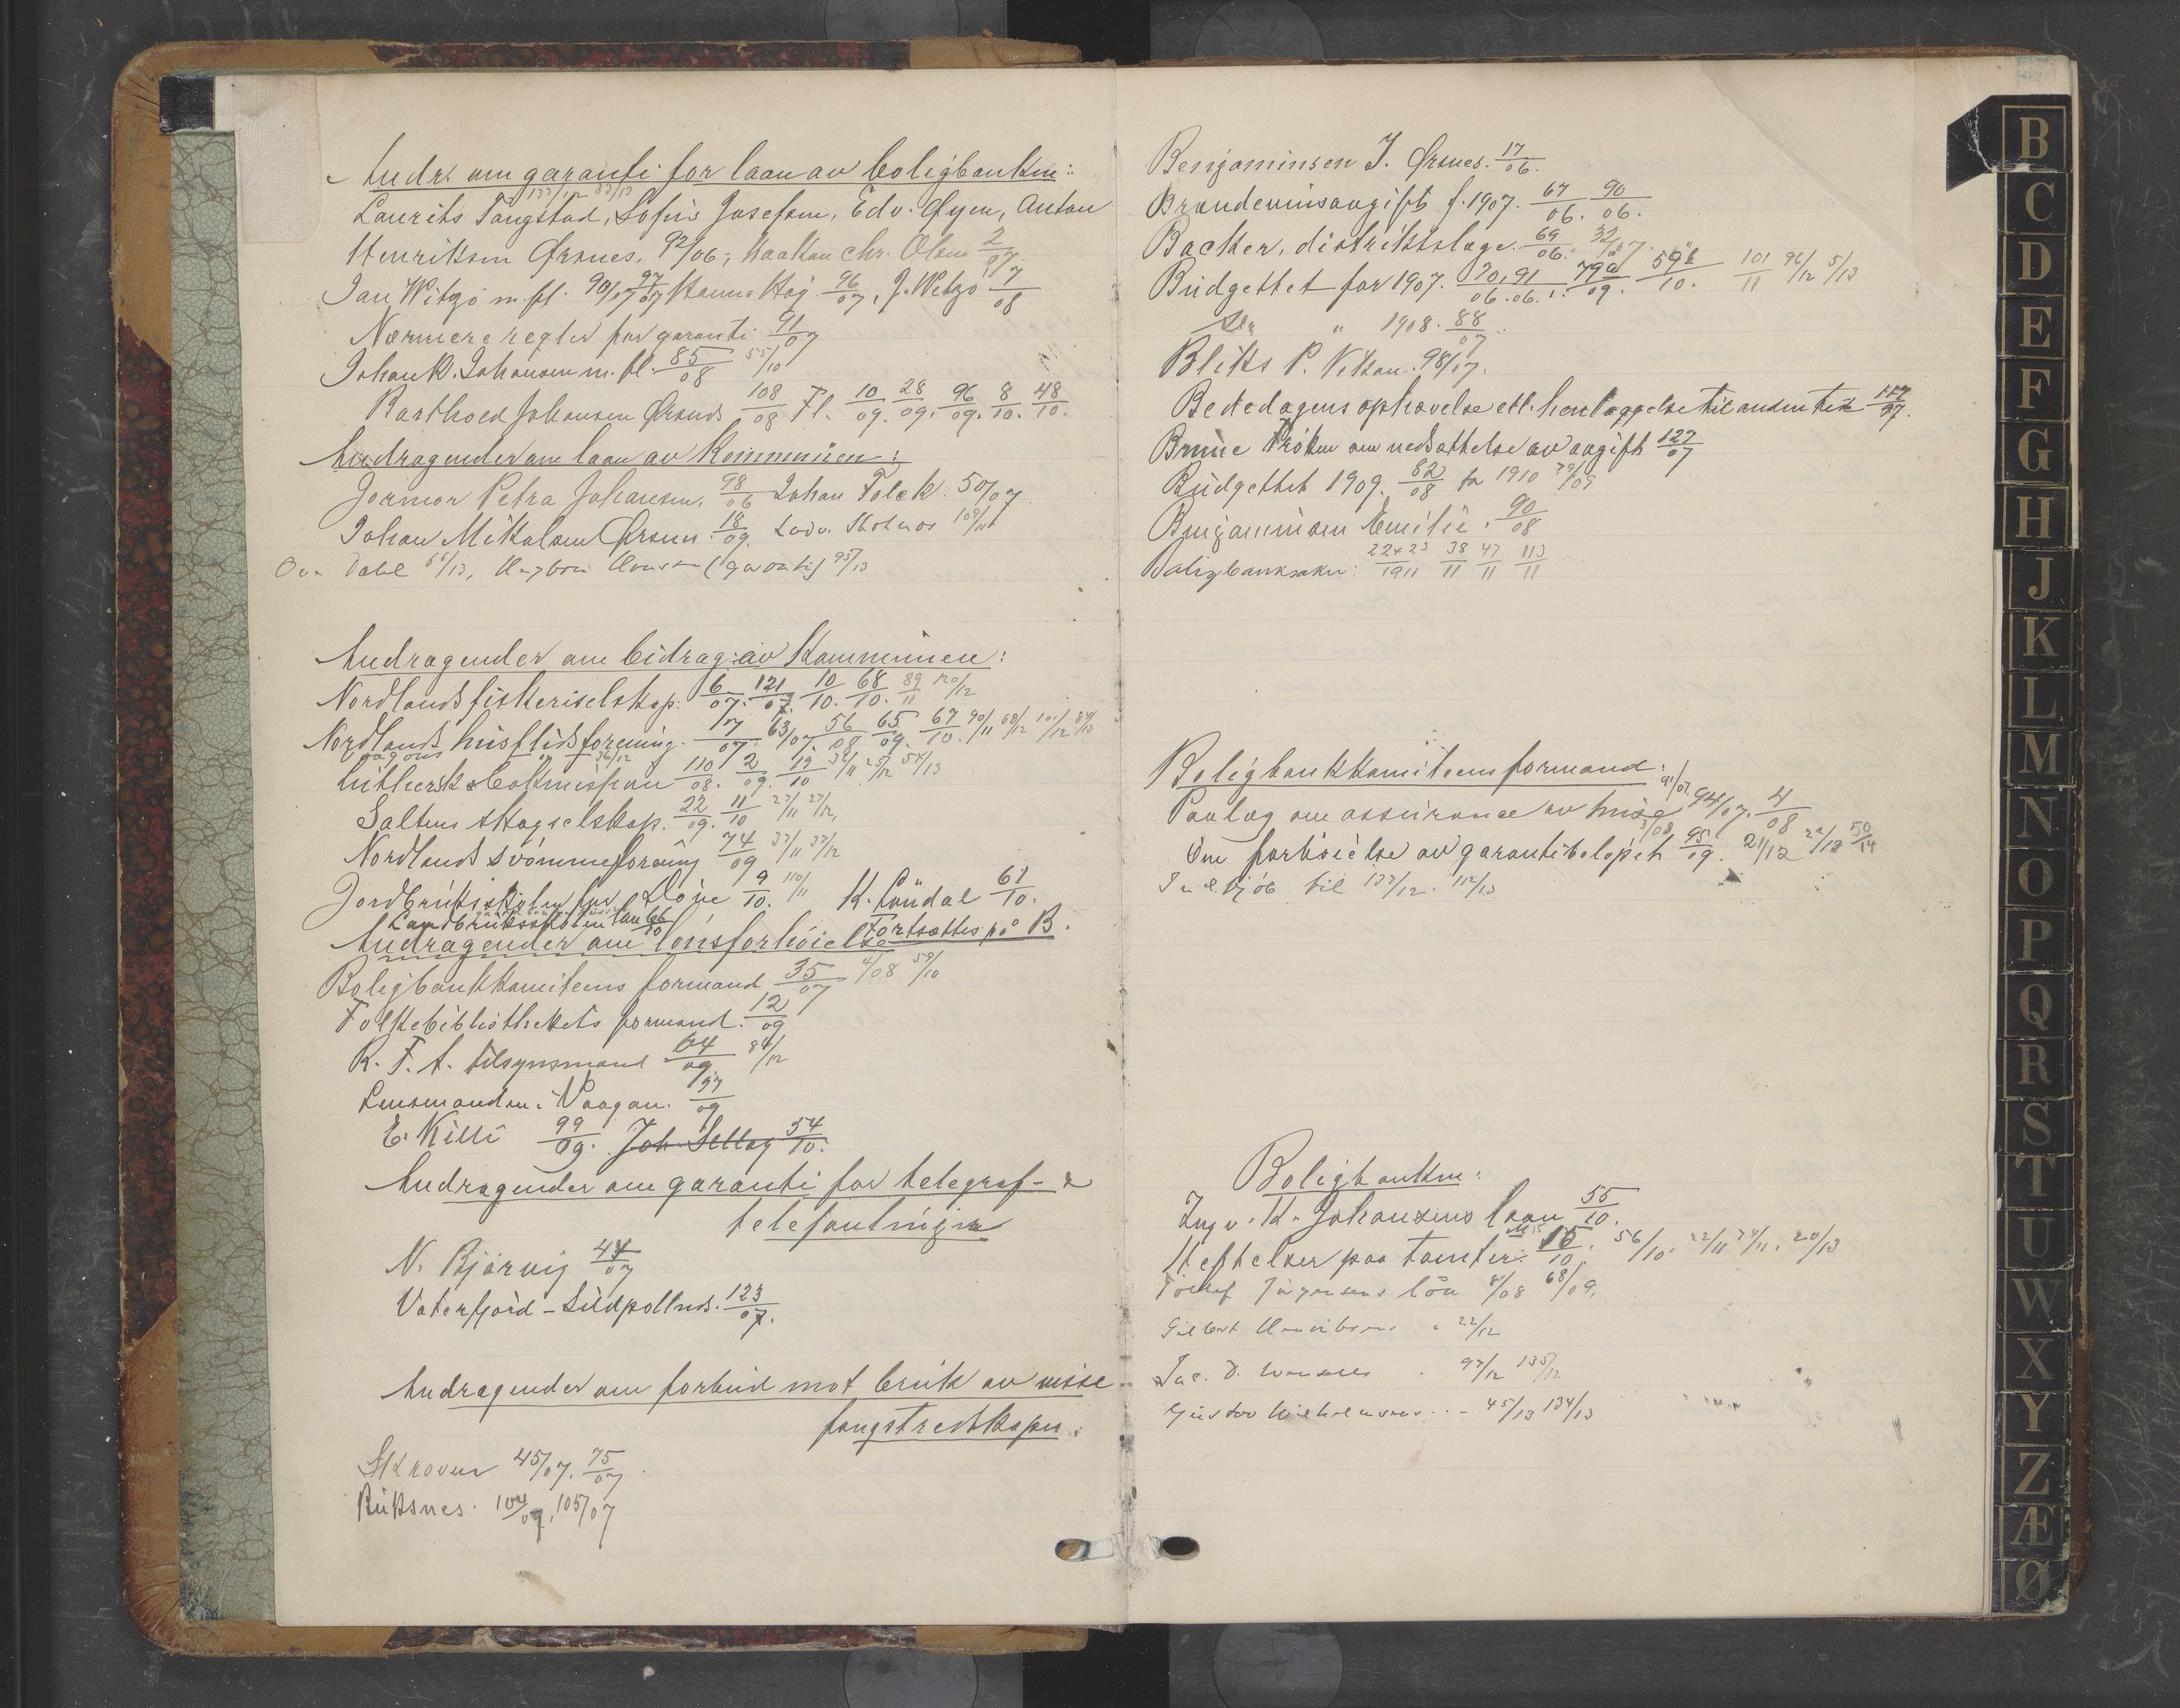 Andr. om garanti for laan av boligbanken:
133/12 33/13
Laurits Tangstad, Sofus Josefsen, Edv. Øyen, Anton
Henriksen Ørsnes, 92/06; Haakon Chr. Olsen 2/97
Jan Witzø m.fl. 90/07 97/07 Hanna Hog 96/07, J. Witzø 7/08
Nærmere regler for garanti 91/07
Johan K. Johansen m.fl. 85/08 55/10
Barthold Johansen Ørsnes 108/08 Fl. 10/09. 28/09. 96/09. 8/10. 48/10.
Andragender om laan av Kommunen:
Jormor Petra Johansen, 98/06 Johan Falck. 50/07
Johan Mikalsen Ørsnes. 18/09. Ludv. 109/11
Dahl 66/13, (garanti) 95/13
Andragender om bidrag av Kommunen:
Nordlands fiskeriselskap. 6/07. 121/07. 10/10. 68/10. 89/11 120/12
Nordlands husflidsforening. 17/07. 63/07. 56/08 65/09. 67/10. 90/11 68/12 101/12 84/13
Vågans 36/12
Luthersk Bokmission 110/08. 2/09. 12/10 38/11 25/12 54/13
Saltens skogselskap. 22/09. 11/10 27/11 27/12,
Nordlands svømmeforening 74/09 37/11 37/12
Jordbruksskolen for Døve 9/10. 110/11 K. Lündal 61/10.
Landbruksskolen 66/10
Andragender om lønsforhøielse Fortsættes på B.
Boligbankkomiteens formand 35/07 4/08 59/10
Folkebibliothekets formand. 12/09
R. F. A. tilsynsmand 64/09 84/12
Lensmanden i Vaagan. 97/09
E. Killi 99/09. Joh. Sellæg 54/10.
Andragender om garanti for telegraf- &
telefonlinjer
N. Bjørvig 44/07
Vaterfjord - Sildpollnes. 123/07.
Andragender om forbud mot bruk av visse
fangstredskaper:
Skroven 45/07. 75/07
Risksnes. 104/07, 105/07
Benjaminsen J. Ørsnes. 17/06.
Brændevinsavgift f. 1907. 67/06. 90/06.
Backer, distriktslæge. 69/06. 32/07.
Budgettet for 1907. 70,91/06.06. 79a/09. 59b/10. 101/11 96/12 5/13
" 1908. 88/07.
Bliks P. Vikan. 98/17.
Bededagens ophævelse ell. henlæggelse til anden tid 117/07.
Brune Frøken om nedsættelse av avgift 127/07
Budgettet 1909. 82/08 for 1910 79/09
Benjaminsen Emilie. 90/08
Boligbanksaker: 22+23/1911 38/11 47/11 113/11
Boligbankkomiteens formand: 91/07.
Paalæg om assurance av huse 94/07. 4/08
3/08.
Om forhøielse av garantibeløpet 95/09. 21/12 22/13 50/14
til 133/12. 112/13
Boligbanken:
Ingv. K. Johansens laan 55/10.
Heftelser paa tomter. 15/10. 56/10. 22/11 74/11. 20/13
Jørgensens lån 8/08 68/09.
Gilbert Henriksens " 22/12
Jac. D. 97/12 135/12
Gustav Wilhelmsens.. - 45/13 134/13
B
C
D
E
F
G
H
J
K
L
M
N
O
P
Q
R
S
T
U
W
X
Y
Z
Æ
Ø